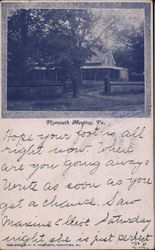 Plymouth Meeting, Pa.
Hope your foot is all
right now. When
are you going away?
Write as soon as you
get a chance. Saw
Maxine Elliot Saturday
night she is just perfect